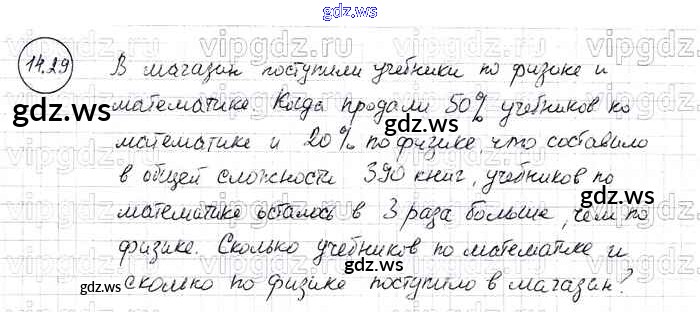 gdz.ws
14.29
В магазин поступили учебники по физике и
математике. Когда продали 50% учебников по
gdz.ws
gdz.ws
математике и 20% по физике, что составило
в общей сложности 390 книг, учебников по
gdz.ws
математике осталось в 3 раза больше, чем по
физике. Сколько учебников по математике и
gdz.ws
сколько по физике поступило в магазин?
gdz.ws